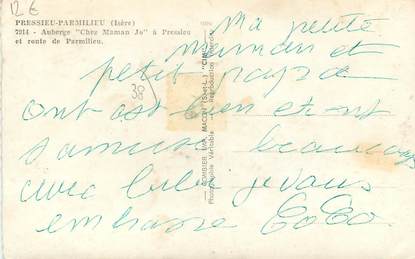 12 €
PRESSIEU-PARMILIEU (Isère)
7214 - Auberge "Chez Maman Jo" à Pressieu
et route de Parmilieu.
38
COMBIER IMP. MACON (S.-et-L.) "CIM"
Photographie Véritable Reproduction Interdite
Ma petite
maman et
petit papa
ont est bien et ont
s'amuse beaucoup
avec je vous
embrasse CoCo